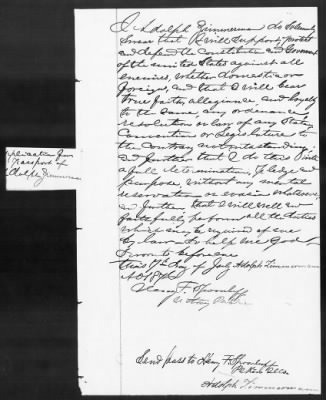 Application for
Passport of
Adolph Zimmerman
I Adolph Zimmerman do Solemnly
Swear that I will Support, protect
and defend the Constitution and Government
of the united States against all
enemies, whether domestic or
Foreign, and that I will bear
True faith, allegiance and loyalty
to the Same any ordinance,
resolution or law of any State
Convention or Legislature to
the Contrary notwithstanding;
and further that I do this with
a full determination, pledge and
purpose, without any mental
reservation or evasion whatsoever,
and further that I will well and
faithfully perform all the duties
which may be required of me
by law. So help me God
Sworn to before me
this 17th day of July Adolph Zimmerman
AD
Henry F.
Notary Public
Send pass to Henry F.
Adolph Zimmerman